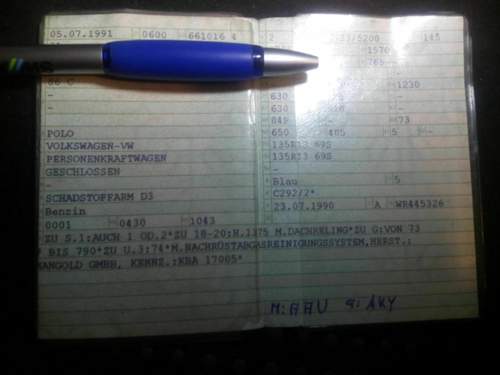 05.07.1991 0600 661016 4
-
-
-
POLO
VOLKSWAGEN-VW
PERSONENKRAFTWAGEN
GESCHLOSSEN
-
SCHADSTOFFARM D3
Benzin
0001 0430 1043
2 /5200 145
1570
765
-
1230
630 -
630 -
73
650 485 5 -
135R13 69S
135R13 69S
-
-
Blau 5
C292/2*
23.07.1990 A WR445326
ZU S.1:AUCH 1 OD.2*ZU 18-20:H.1375 M.DACHRELING*ZU G:VON 73
BIS 790*ZU U.3:74*M.NACHRÜSTABGASREINIGUNGSSYSTEM,HERST.:
MANGOLD GMBH, KENNZ.:KBA 17005*
M:AAU 9:AKY